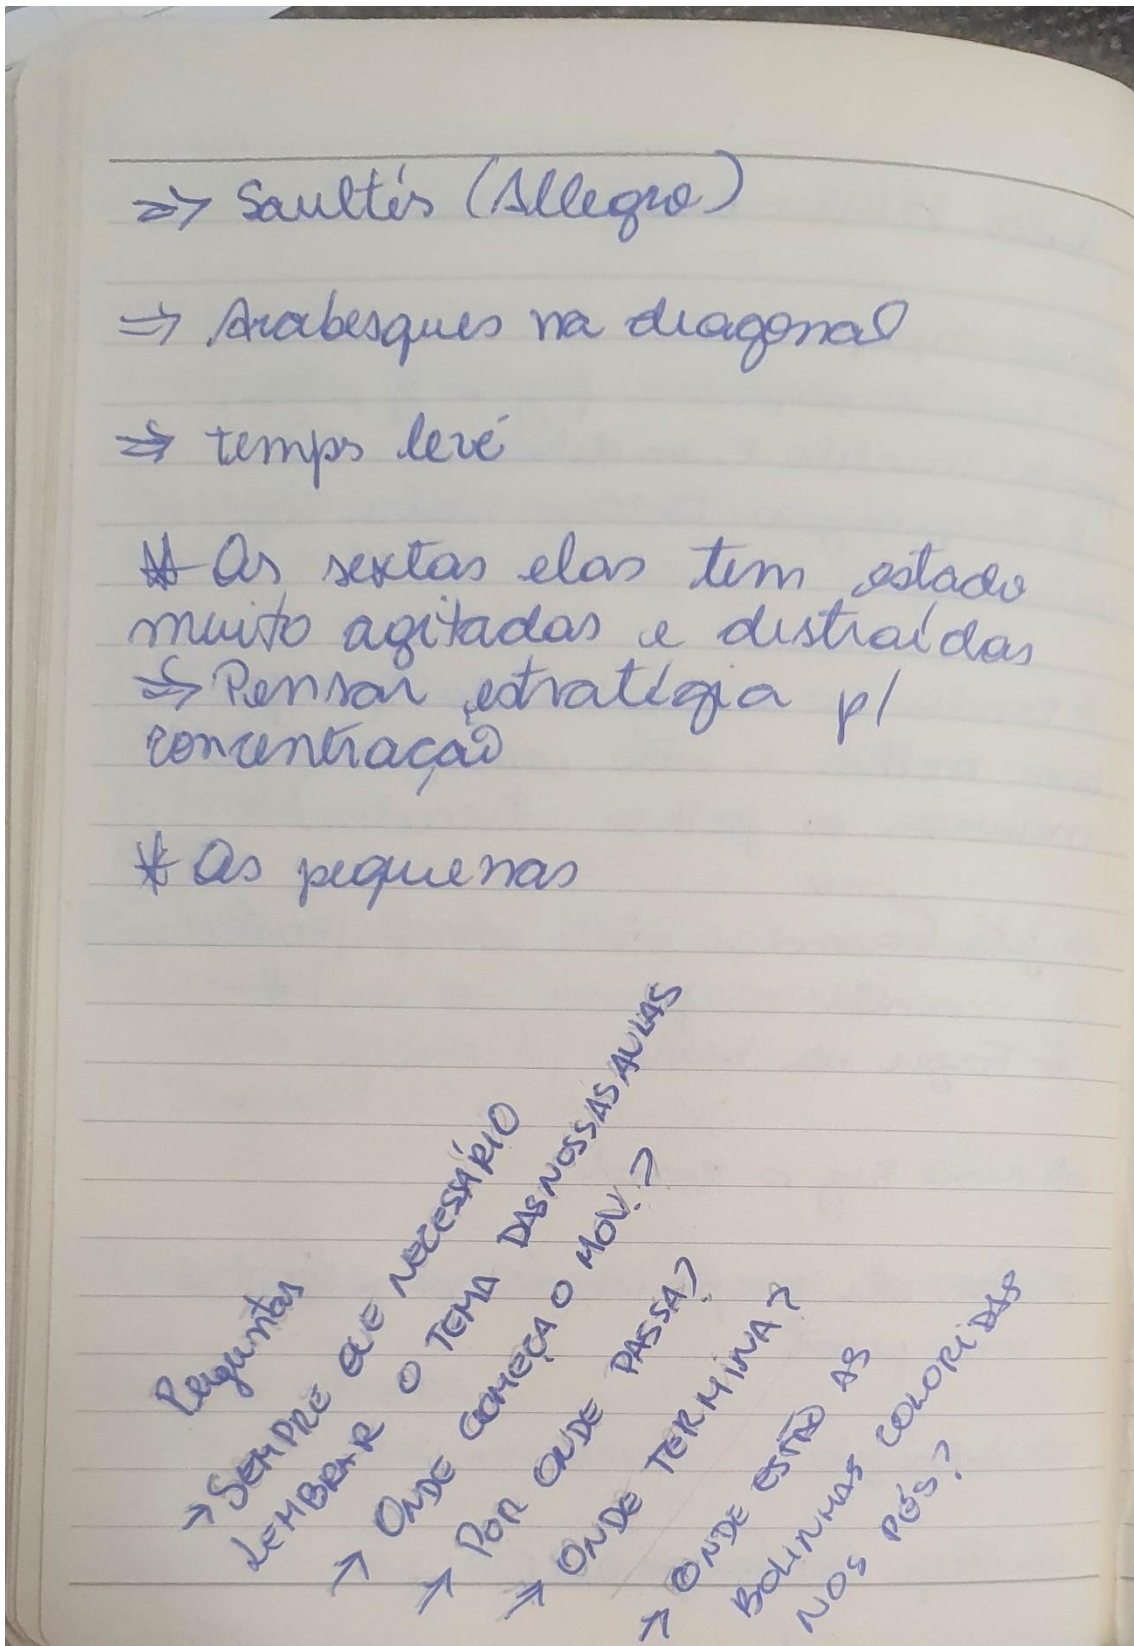 ⇒ Saultés (Allegro)
⇒ Arabesques na diagonal
⇒ temps levé
* As sextas elas tem estado
muito agitadas e distraídas
⇒ Pensar estratégia p/
concentração
* As pequenas
Perguntas
→ SEMPRE QUE NECESSÁRIO
LEMBRAR O TEMA DAS NOSSAS AULAS
→ ONDE COMEÇA O MOV.?
→ POR ONDE PASSA?
→ ONDE TERMINA?
→ ONDE ESTÃO AS
BOLINHAS COLORIDAS
NOS PÉS?